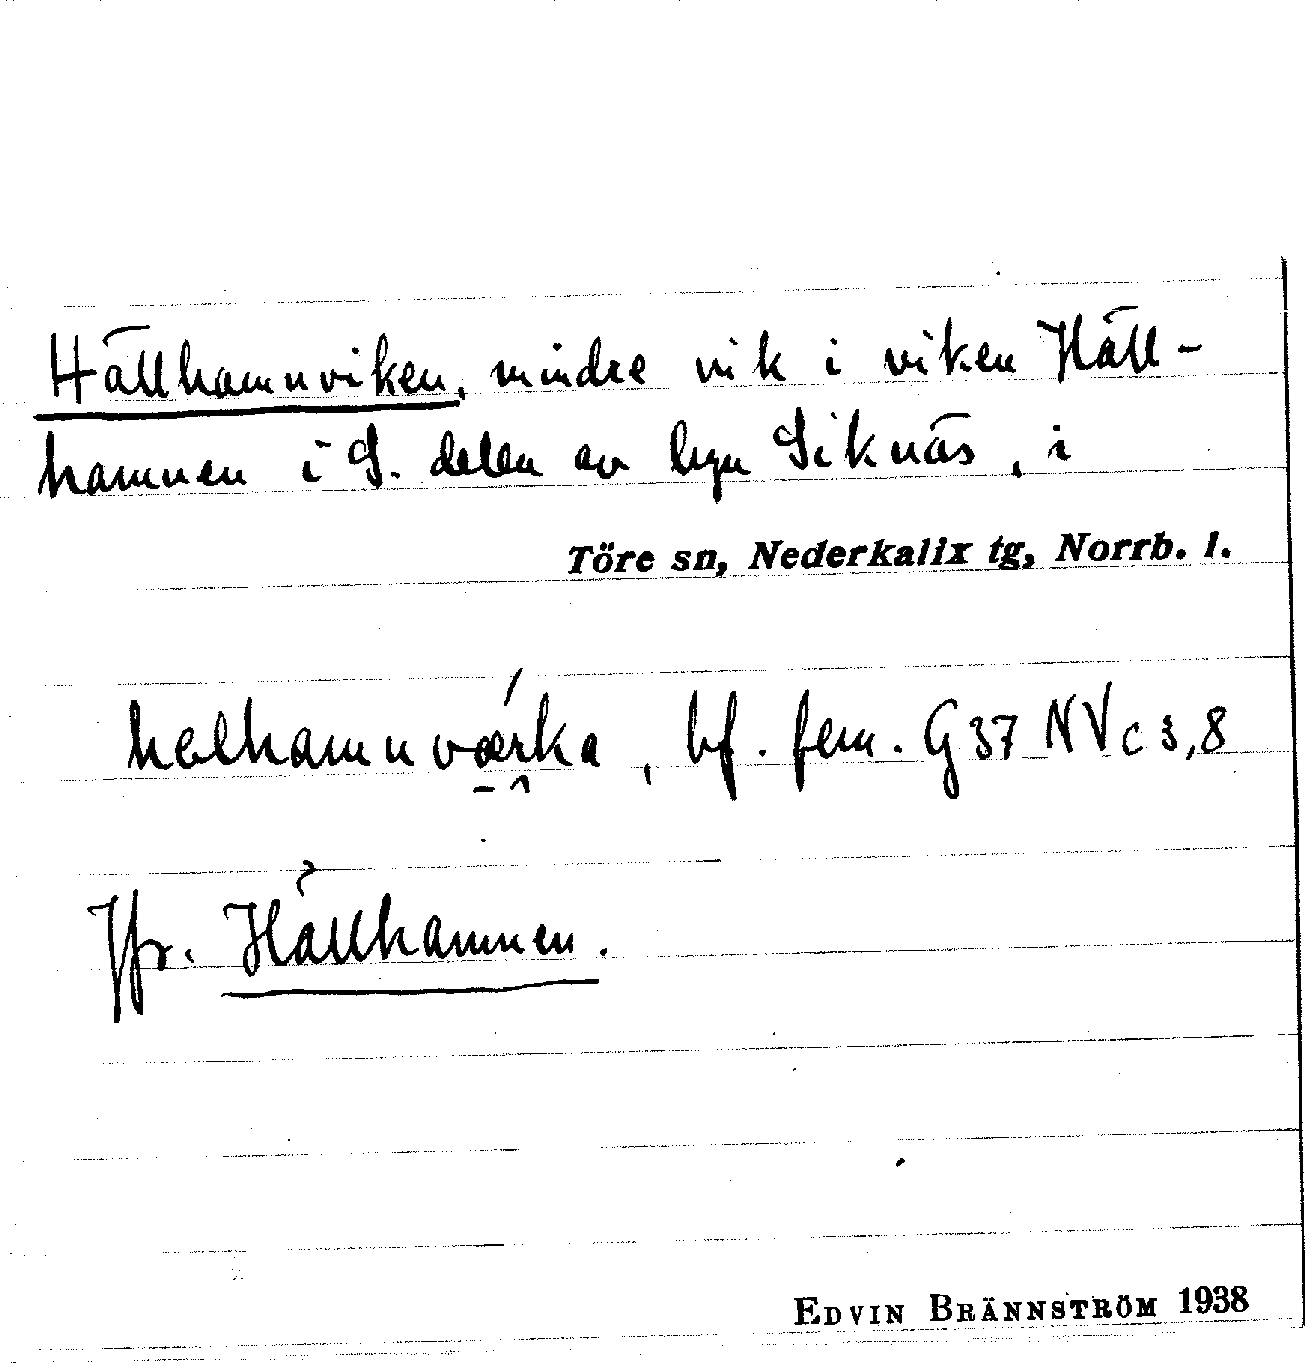 Hällhamnviken, mindre vik i viken Häll-
hamnen i S. delen av byn Siknäs, i
Töre sn, Nederkalix tg, Norrb. l.
helhamnværka, bf. fem. G 37 NV c 3,8
Jfr. Hällhamnen.
EDVIN BRÄNNSTRÖM 1938